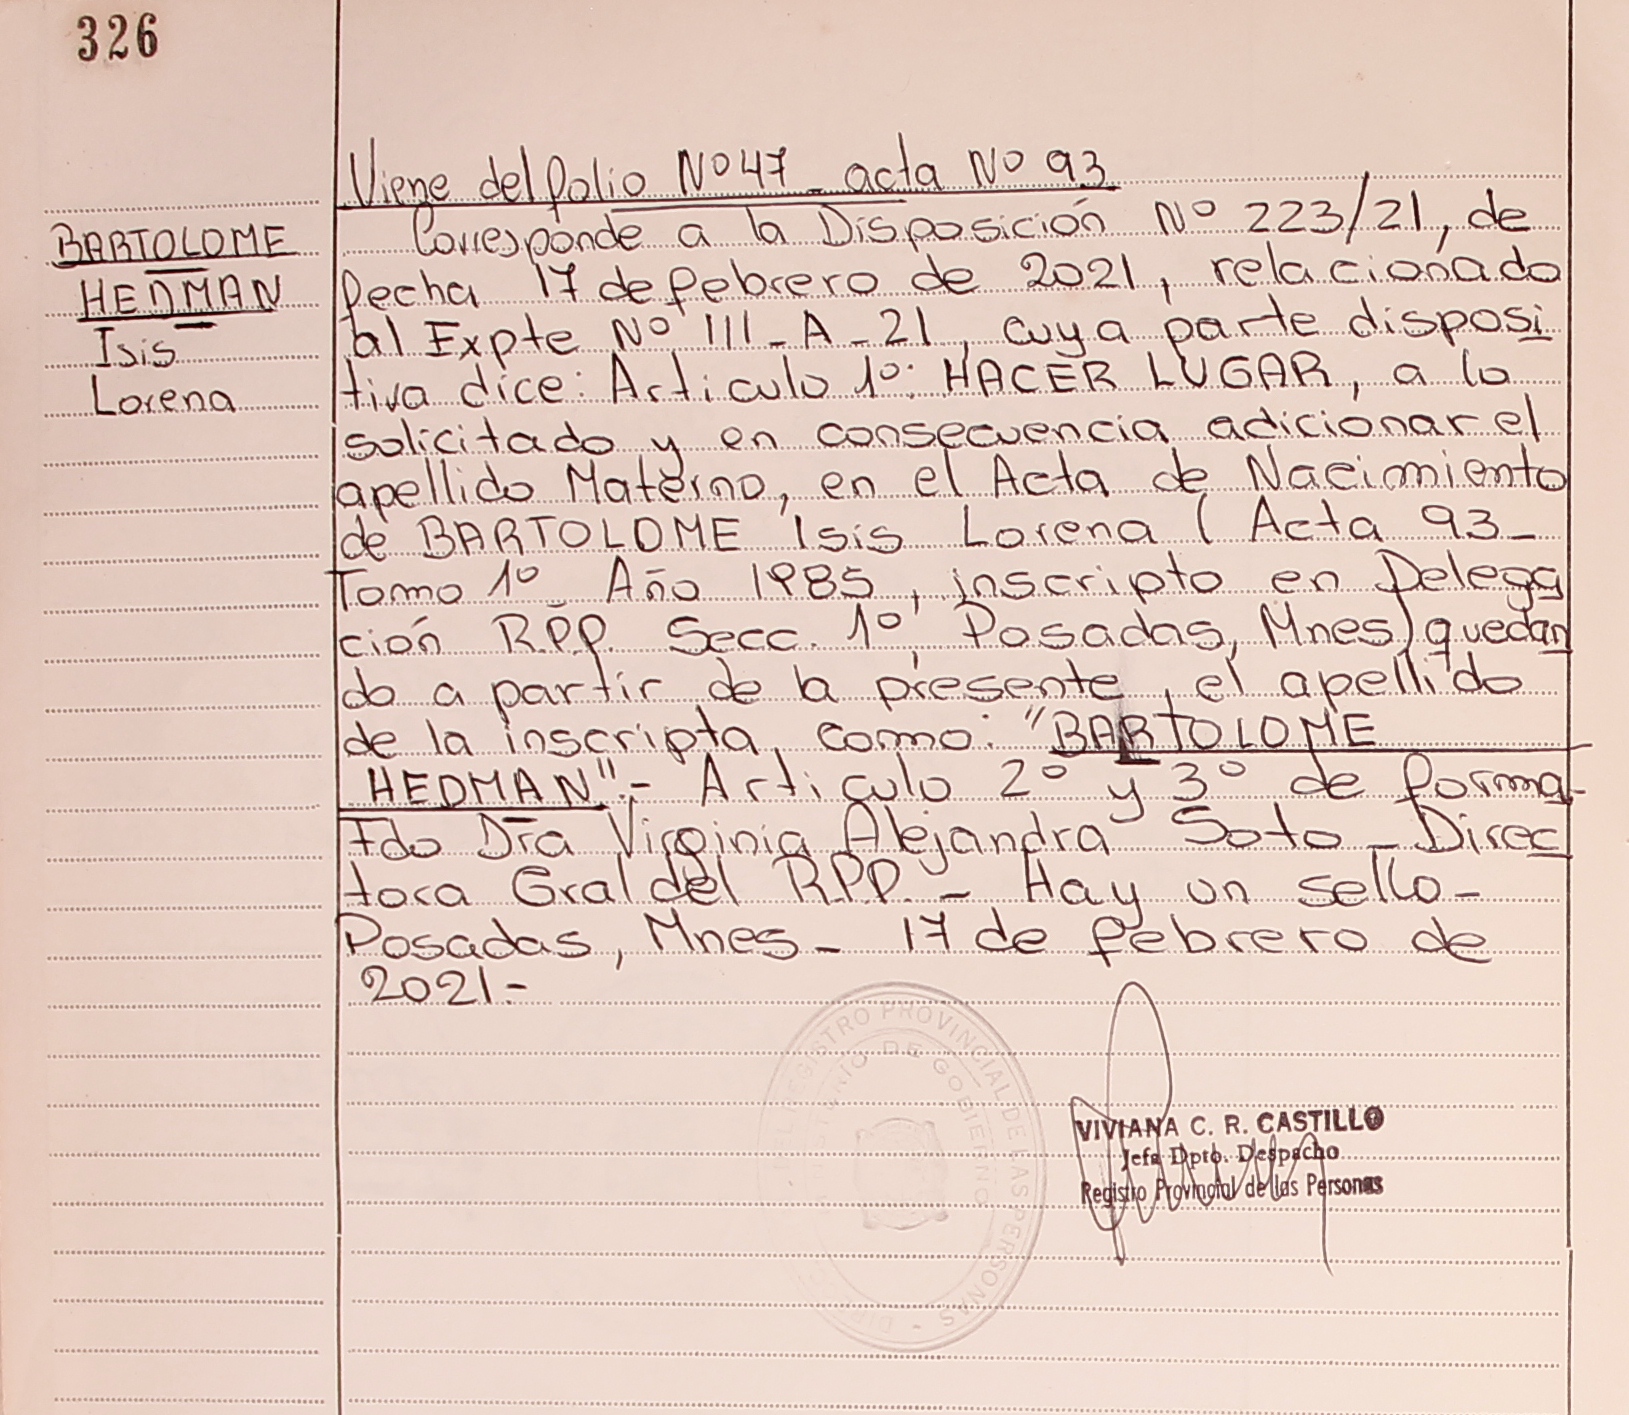 326
Viene del folio Nº 47 - acta Nº 93
BARTOLOME
HEDMAN
Isis
Lorena
Corresponde a la Disposición Nº 223/21, de
fecha 17 de febrero de 2021, relacionado
al Expte Nº 111-A-21, cuya parte disposi
tiva dice: Articulo 1º: HACER LUGAR, a lo
solicitado y en consecuencia adicionar el
apellido Materno, en el Acta de Nacimiento
de BARTOLOME Isis Lorena (Acta 93-
Tomo 1º- Año 1985, inscripto en Delega
ción R.P.P. Secc. 1º, Posadas, Mnes) quedan
do a partir de la presente, el apellido
de la inscripta, como: "BARTOLOME
HEDMAN".- Articulo 2º y 3º de forma-
Fdo Dra Virginia Alejandra Soto - Direc
tora Gral del R.P.P. - Hay un sello-
Posadas, Mnes - 17 de febrero de
2021.-
REGISTRO PROVINCIAL DE LAS PERSONAS
MINISTERIO DE GOBIERNO
VIVIANA C. R. CASTILLO
Jefa Dpto. Despacho
Registro Provincial de las Personas